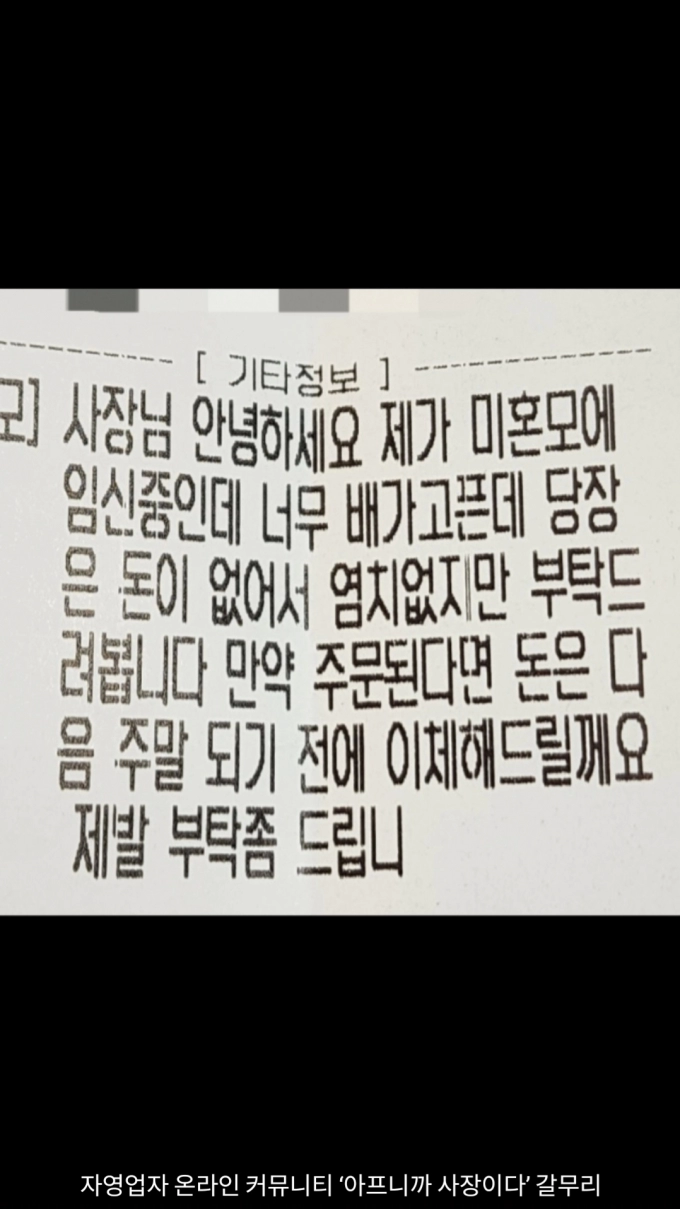 [ 기타정보 ]
모] 사장님 안녕하세요 제가 미혼모에
임신중인데 너무 배가고픈데 당장
은 돈이 없어서 염치없지만 부탁드
려봅니다 만약 주문된다면 돈은 다
음 주말 되기 전에 이체해드릴께요
제발 부탁좀 드립니
자영업자 온라인 커뮤니티 ‘아프니까 사장이다’ 갈무리